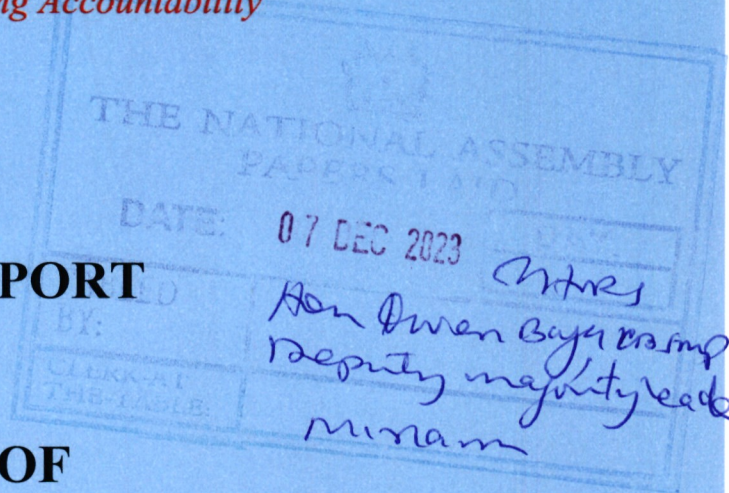 ng Accountability
THE NATIONAL ASSEMBLY
PAPERS LAID
DATE: 07 DEC 2023
DAY:
PORT
BY:
Hon Owen Baya
Deputy majority leade
CLERK-AT
THE-TABLE:
OF